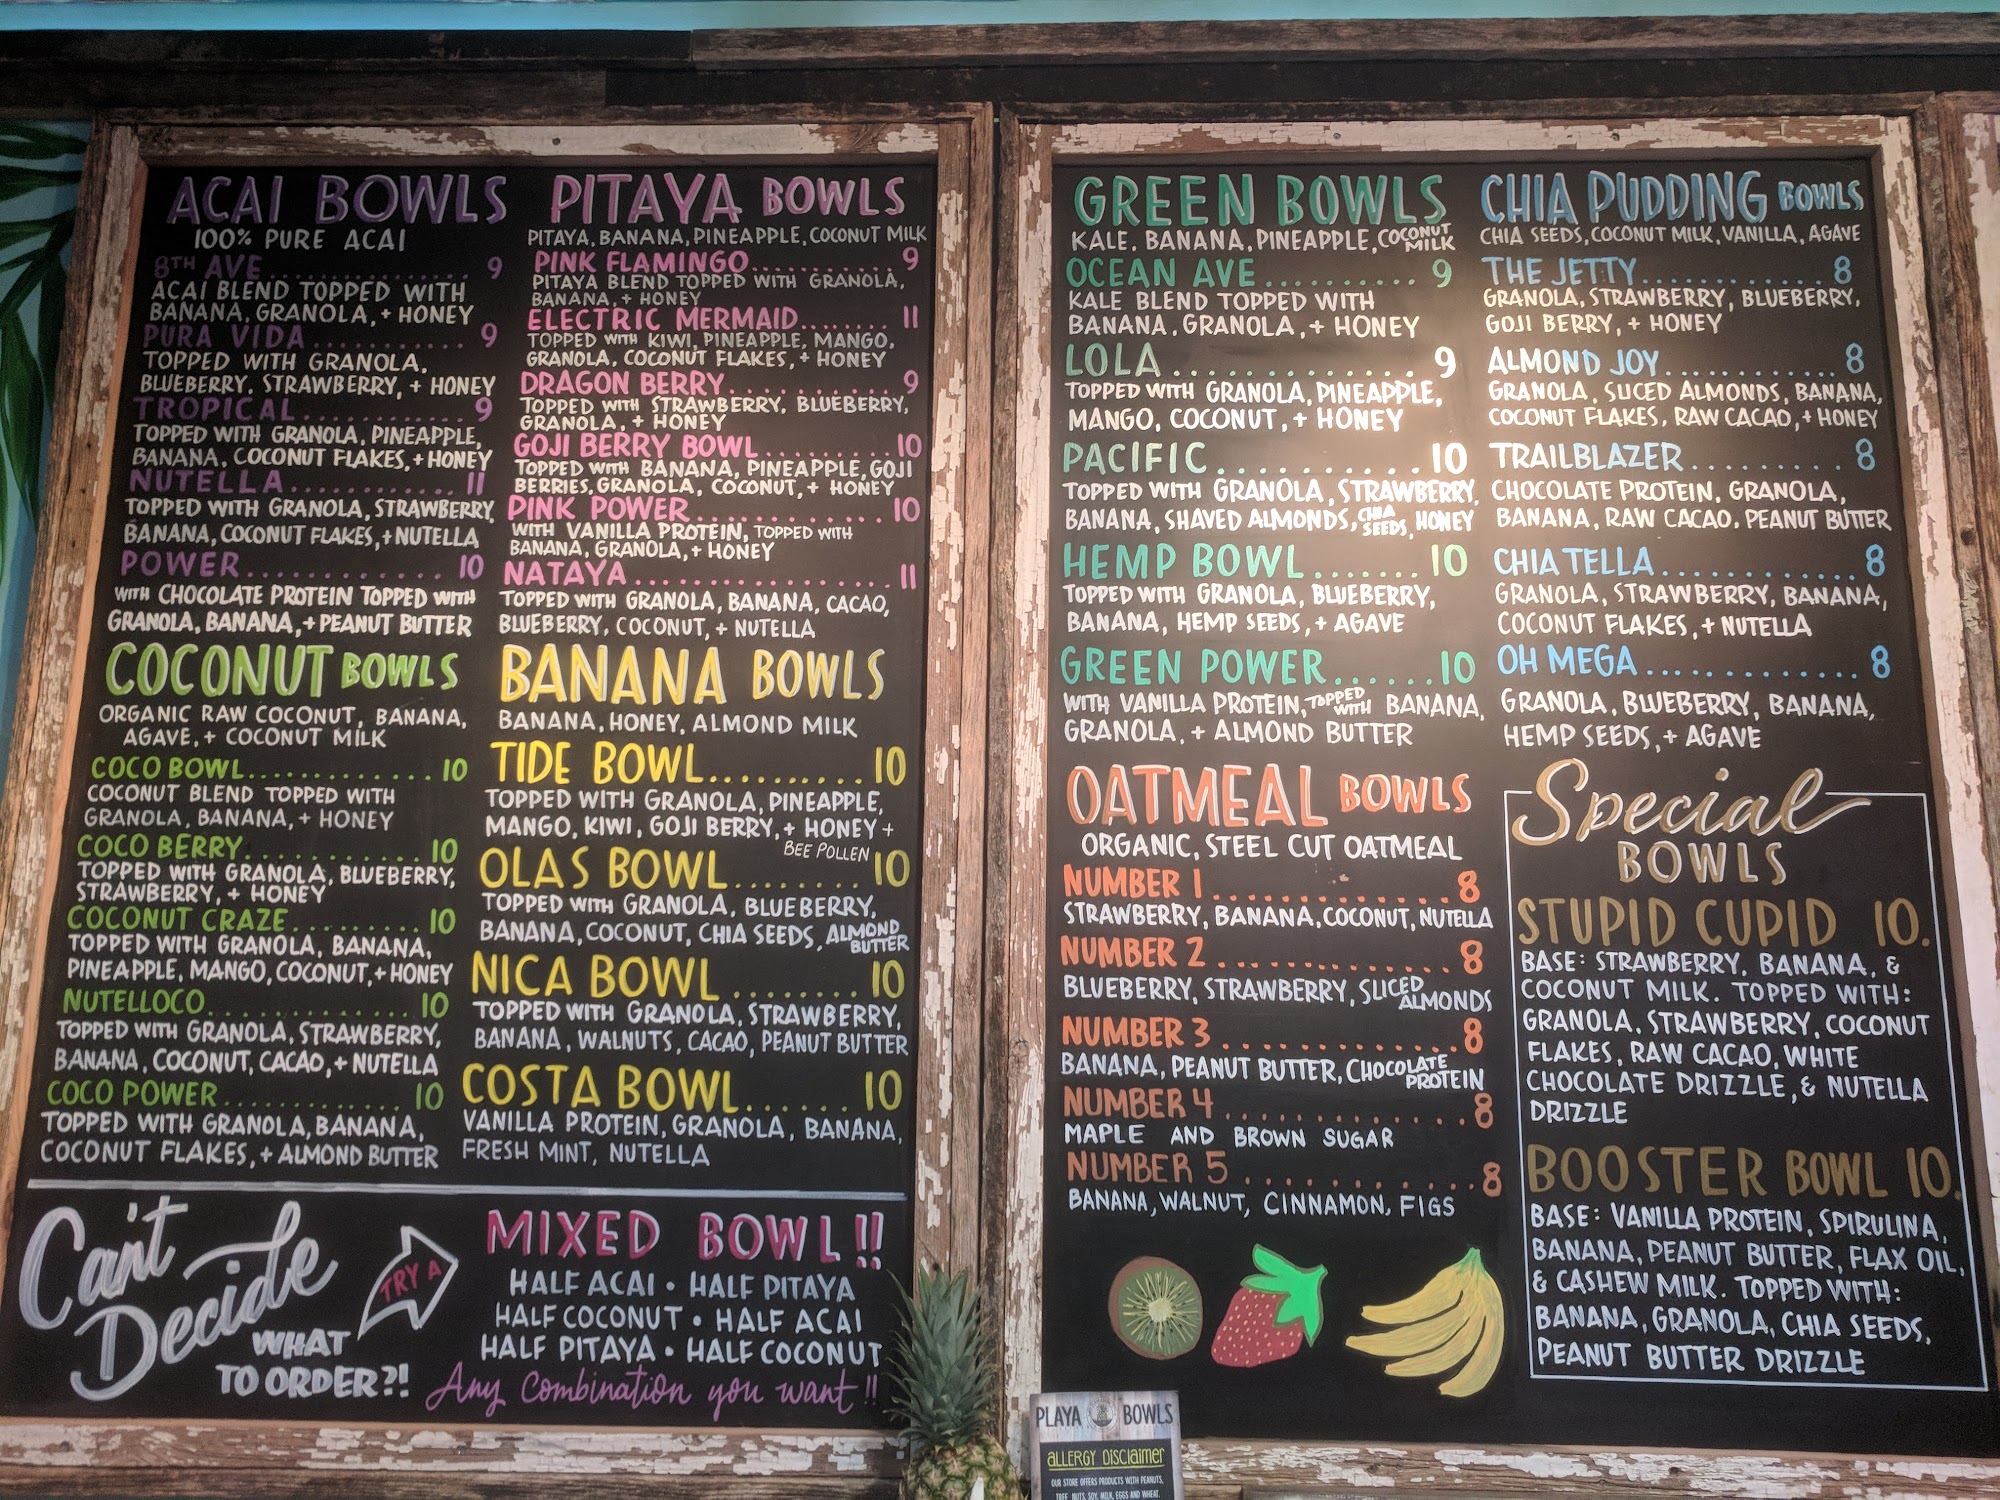 ACAI BOWLS
100% PURE ACAI
8TH AVE................ 9
ACAI BLEND TOPPED WITH
BANANA, GRANOLA, + HONEY
PURA VIDA............ 9
TOPPED WITH GRANOLA,
BLUEBERRY, STRAWBERRY, + HONEY
TROPICAL............. 9
TOPPED WITH GRANOLA, PINEAPPLE,
BANANA, COCONUT FLAKES, + HONEY
NUTELLA............. 11
TOPPED WITH GRANOLA, STRAWBERRY,
BANANA, COCONUT FLAKES, + NUTELLA
POWER............. 10
WITH CHOCOLATE PROTEIN TOPPED WITH
GRANOLA, BANANA, + PEANUT BUTTER
COCONUT BOWLS
ORGANIC RAW COCONUT, BANANA,
AGAVE, + COCONUT MILK
COCO BOWL............. 10
COCONUT BLEND TOPPED WITH
GRANOLA, BANANA, + HONEY
COCO BERRY............ 10
TOPPED WITH GRANOLA, BLUEBERRY,
STRAWBERRY, + HONEY
COCONUT CRAZE......... 10
TOPPED WITH GRANOLA, BANANA,
PINEAPPLE, MANGO, COCONUT, + HONEY
NUTELLOCO............. 10
TOPPED WITH GRANOLA, STRAWBERRY,
BANANA, COCONUT, CACAO, + NUTELLA
COCO POWER............ 10
TOPPED WITH GRANOLA, BANANA,
COCONUT FLAKES, + ALMOND BUTTER
PITAYA BOWLS
PITAYA, BANANA, PINEAPPLE, COCONUT MILK
PINK FLAMINGO........... 9
PITAYA BLEND TOPPED WITH GRANOLA,
BANANA, + HONEY
ELECTRIC MERMAID........ 11
TOPPED WITH KIWI, PINEAPPLE, MANGO,
GRANOLA, COCONUT FLAKES, + HONEY
DRAGON BERRY............ 9
TOPPED WITH STRAWBERRY, BLUEBERRY,
GRANOLA, + HONEY
GOJI BERRY BOWL.......... 10
TOPPED WITH BANANA, PINEAPPLE, GOJI
BERRIES, GRANOLA, COCONUT, + HONEY
PINK POWER............. 10
WITH VANILLA PROTEIN, TOPPED WITH
BANANA, GRANOLA, + HONEY
NATAYA................. 11
TOPPED WITH GRANOLA, BANANA, CACAO,
BLUEBERRY, COCONUT, + NUTELLA
BANANA BOWLS
BANANA, HONEY, ALMOND MILK
TIDE BOWL.......... 10
TOPPED WITH GRANOLA, PINEAPPLE,
MANGO, KIWI, GOJI BERRY, + HONEY +
BEE POLLEN
OLAS BOWL........ 10
TOPPED WITH GRANOLA, BLUEBERRY,
BANANA, COCONUT, CHIA SEEDS, ALMOND
BUTTER
NICA BOWL........ 10
TOPPED WITH GRANOLA, STRAWBERRY,
BANANA, WALNUTS, CACAO, PEANUT BUTTER
COSTA BOWL...... 10
VANILLA PROTEIN, GRANOLA, BANANA,
FRESH MINT, NUTELLA
Can't
Decide
WHAT
TO ORDER?!
TRY A
MIXED BOWL!!
HALF ACAI • HALF PITAYA
HALF COCONUT • HALF ACAI
HALF PITAYA • HALF COCONUT
Any combination you want!!
GREEN BOWLS
KALE, BANANA, PINEAPPLE, COCONUT
MILK
OCEAN AVE.......... 9
KALE BLEND TOPPED WITH
BANANA, GRANOLA, + HONEY
LOLA............... 9
TOPPED WITH GRANOLA, PINEAPPLE,
MANGO, COCONUT, + HONEY
PACIFIC............ 10
TOPPED WITH GRANOLA, STRAWBERRY,
BANANA, SHAVED ALMONDS, CHIA
SEEDS, HONEY
HEMP BOWL....... 10
TOPPED WITH GRANOLA, BLUEBERRY,
BANANA, HEMP SEEDS, + AGAVE
GREEN POWER...... 10
WITH VANILLA PROTEIN, TOPPED WITH BANANA,
GRANOLA, + ALMOND BUTTER
OATMEAL BOWLS
ORGANIC, STEEL CUT OATMEAL
NUMBER 1............. 8
STRAWBERRY, BANANA, COCONUT, NUTELLA
NUMBER 2............. 8
BLUEBERRY, STRAWBERRY, SLICED
ALMONDS
NUMBER 3............. 8
BANANA, PEANUT BUTTER, CHOCOLATE
PROTEIN
NUMBER 4............. 8
MAPLE AND BROWN SUGAR
NUMBER 5............. 8
BANANA, WALNUT, CINNAMON, FIGS
CHIA PUDDING BOWLS
CHIA SEEDS, COCONUT MILK, VANILLA, AGAVE
THE JETTY............. 8
GRANOLA, STRAWBERRY, BLUEBERRY,
GOJI BERRY, + HONEY
ALMOND JOY............ 8
GRANOLA, SLICED ALMONDS, BANANA,
COCONUT FLAKES, RAW CACAO, + HONEY
TRAILBLAZER......... 8
CHOCOLATE PROTEIN, GRANOLA,
BANANA, RAW CACAO, PEANUT BUTTER
CHIA TELLA............ 8
GRANOLA, STRAWBERRY, BANANA,
COCONUT FLAKES, + NUTELLA
OH MEGA............. 8
GRANOLA, BLUEBERRY, BANANA,
HEMP SEEDS, + AGAVE
Special
BOWLS
STUPID CUPID 10.
BASE: STRAWBERRY, BANANA, &
COCONUT MILK. TOPPED WITH:
GRANOLA, STRAWBERRY, COCONUT
FLAKES, RAW CACAO, WHITE
CHOCOLATE DRIZZLE, & NUTELLA
DRIZZLE
BOOSTER BOWL 10.
BASE: VANILLA PROTEIN, SPIRULINA,
BANANA, PEANUT BUTTER, FLAX OIL,
& CASHEW MILK. TOPPED WITH:
BANANA, GRANOLA, CHIA SEEDS,
PEANUT BUTTER DRIZZLE
PLAYA BOWLS
ALLERGY DISCLAIMER
OUR STORE OFFERS PRODUCTS WITH PEANUTS,
TREE NUTS, SOY, MILK, EGGS AND WHEAT.